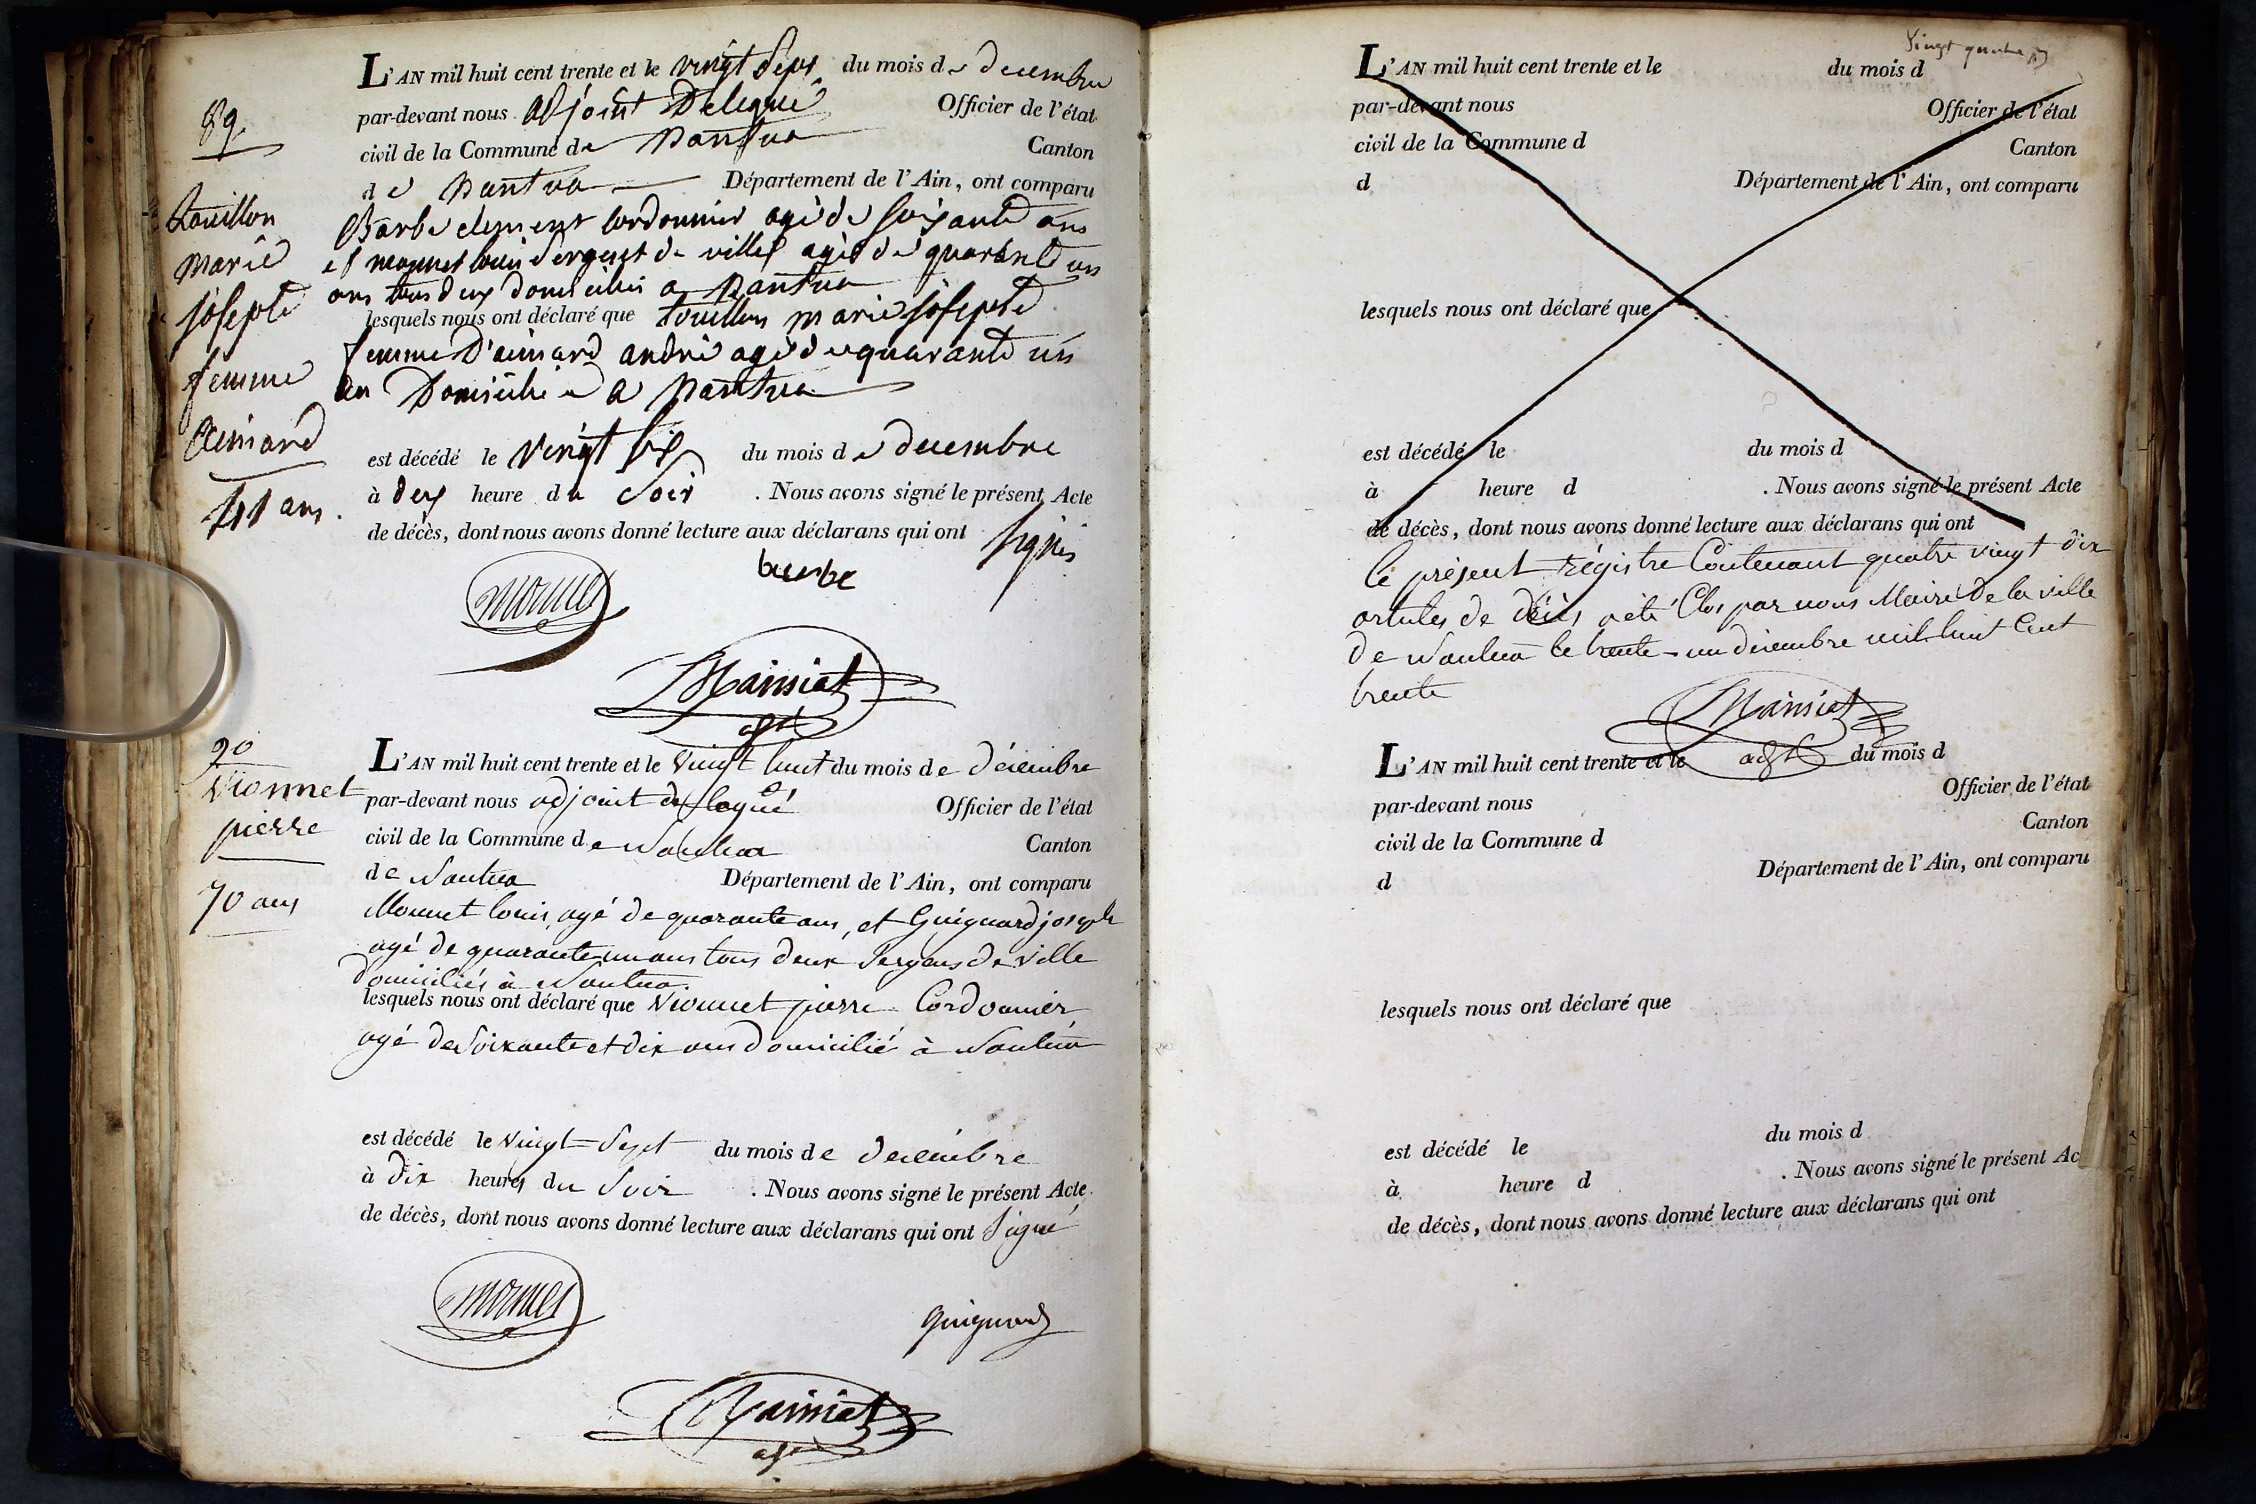 89
touillon
marie
josepte
femme
aimard
41 ans.
L'AN mil huit cent trente et le vingt Sept du mois de decembre
par-devant nous adjoint Delegué Officier de l'état
civil de la Commune de Nantua Canton
de Nantua Département de l'Ain, ont comparu
Barbe clement Cordonnier agè de soixante ans
et monnet louis sergent de ville agès de quarante un
ans tous deux domiciliés a Nantua
lesquels nous ont déclaré que touillon marie josepte
femme D'aimard andrè agè de quarante un
an Domiciliè a Nantua
est décédé le vingt six du mois de decembre
à deux heure du Soir . Nous avons signé le présent Acte
de décès, dont nous avons donné lecture aux déclarans qui ont signès
barbe
monnet
Mainsiat
adjt
90
Vionnet
pierre
70 ans
L'AN mil huit cent trente et le Vingt huit du mois de décembre
par-devant nous adjoint délégué Officier de l'état
civil de la Commune de Nantua Canton
de Nantua Département de l'Ain, ont comparu
Monnet louis, agé de quarante ans, et Guignard joseph
agé de quarante un ans tous deux Sergens de Ville
domiciliés à Nantua.
lesquels nous ont déclaré que Vionnet pierre Cordonnier
agé de Soixante et dix ans domicilié à Nantua
est décédé le Vingt-Sept du mois de décembre
à dix heures du Soir . Nous avons signé le présent Acte
de décès, dont nous avons donné lecture aux déclarans qui ont Signé
monnet
guignard
Mainsiat
adjt
Vingt quatre
L'AN mil huit cent trente et le du mois d
par-devant nous Officier de l'état
civil de la Commune d Canton
d Département de l'Ain, ont comparu
lesquels nous ont déclaré que
est décédé le du mois d
à heure d . Nous avons signé le présent Acte
de décès, dont nous avons donné lecture aux déclarans qui ont
le présent régistre Contenant quatre vingt dix
articles de décès a été Clos par nous Maire de la ville
de Nantua le trente-un décembre mil huit Cent
trente
Mainsiat
adjt
L'AN mil huit cent trente et le du mois d
par-devant nous Officier de l'état
civil de la Commune d Canton
d Département de l'Ain, ont comparu
lesquels nous ont déclaré que
est décédé le du mois d
à heure d . Nous avons signé le présent Ac
de décès, dont nous avons donné lecture aux déclarans qui ont